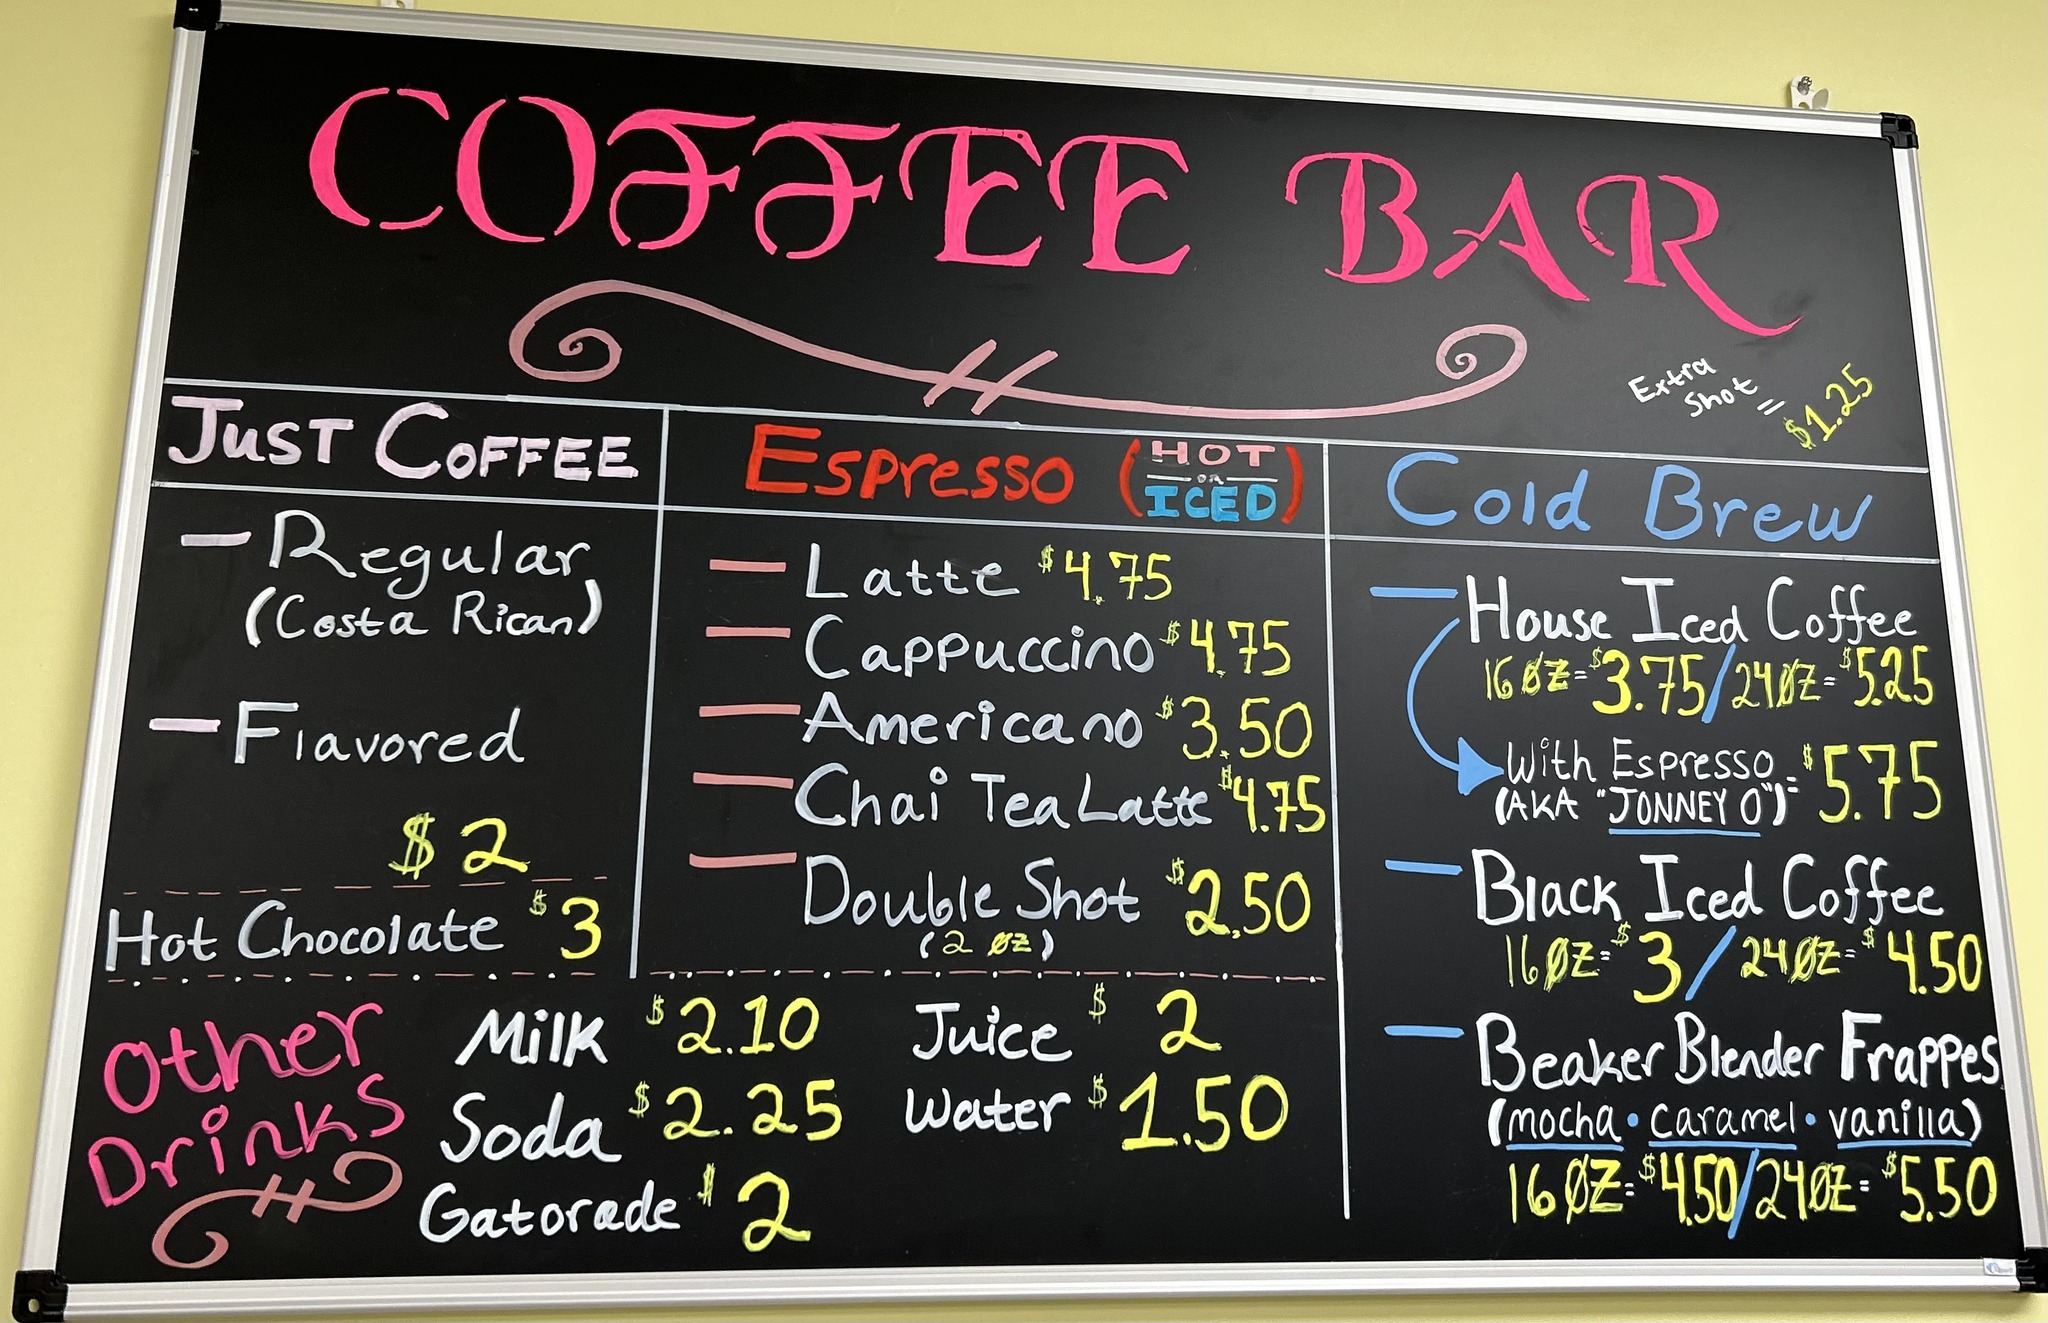 COFFEE BAR
Extra
Shot = $1.25
JUST COFFEE
– Regular
(Costa Rican)
– Flavored
$2
Hot Chocolate $3
Espresso (HOT
OR
ICED)
– Latte $4.75
– Cappuccino $4.75
– Americano $3.50
– Chai Tea Latte $4.75
– Double Shot $2.50
(2 OZ)
Cold Brew
– House Iced Coffee
16 OZ = $3.75 / 24 OZ = $5.25
With Espresso = $5.75
(AKA "JONNEY O")
– Black Iced Coffee
16 OZ = $3 / 24 OZ = $4.50
– Beaker Blender Frappes
(mocha • caramel • vanilla)
16 OZ = $4.50 / 24 OZ = $5.50
Other
Drinks
Milk $2.10
Soda $2.25
Gatorade $2
Juice $2
Water $1.50